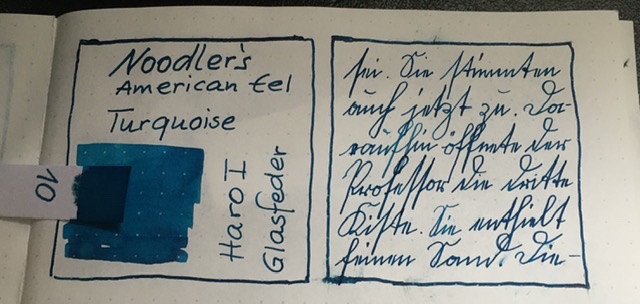 Noodler's
American Eel
Turquoise
Haro I
Glasfeder
10
sei. Sie stimmten
auch jetzt zu. Da-
raufhin öffnete der
Professor die dritte
Kiste. Sie enthielt
feinen Sand. Die-